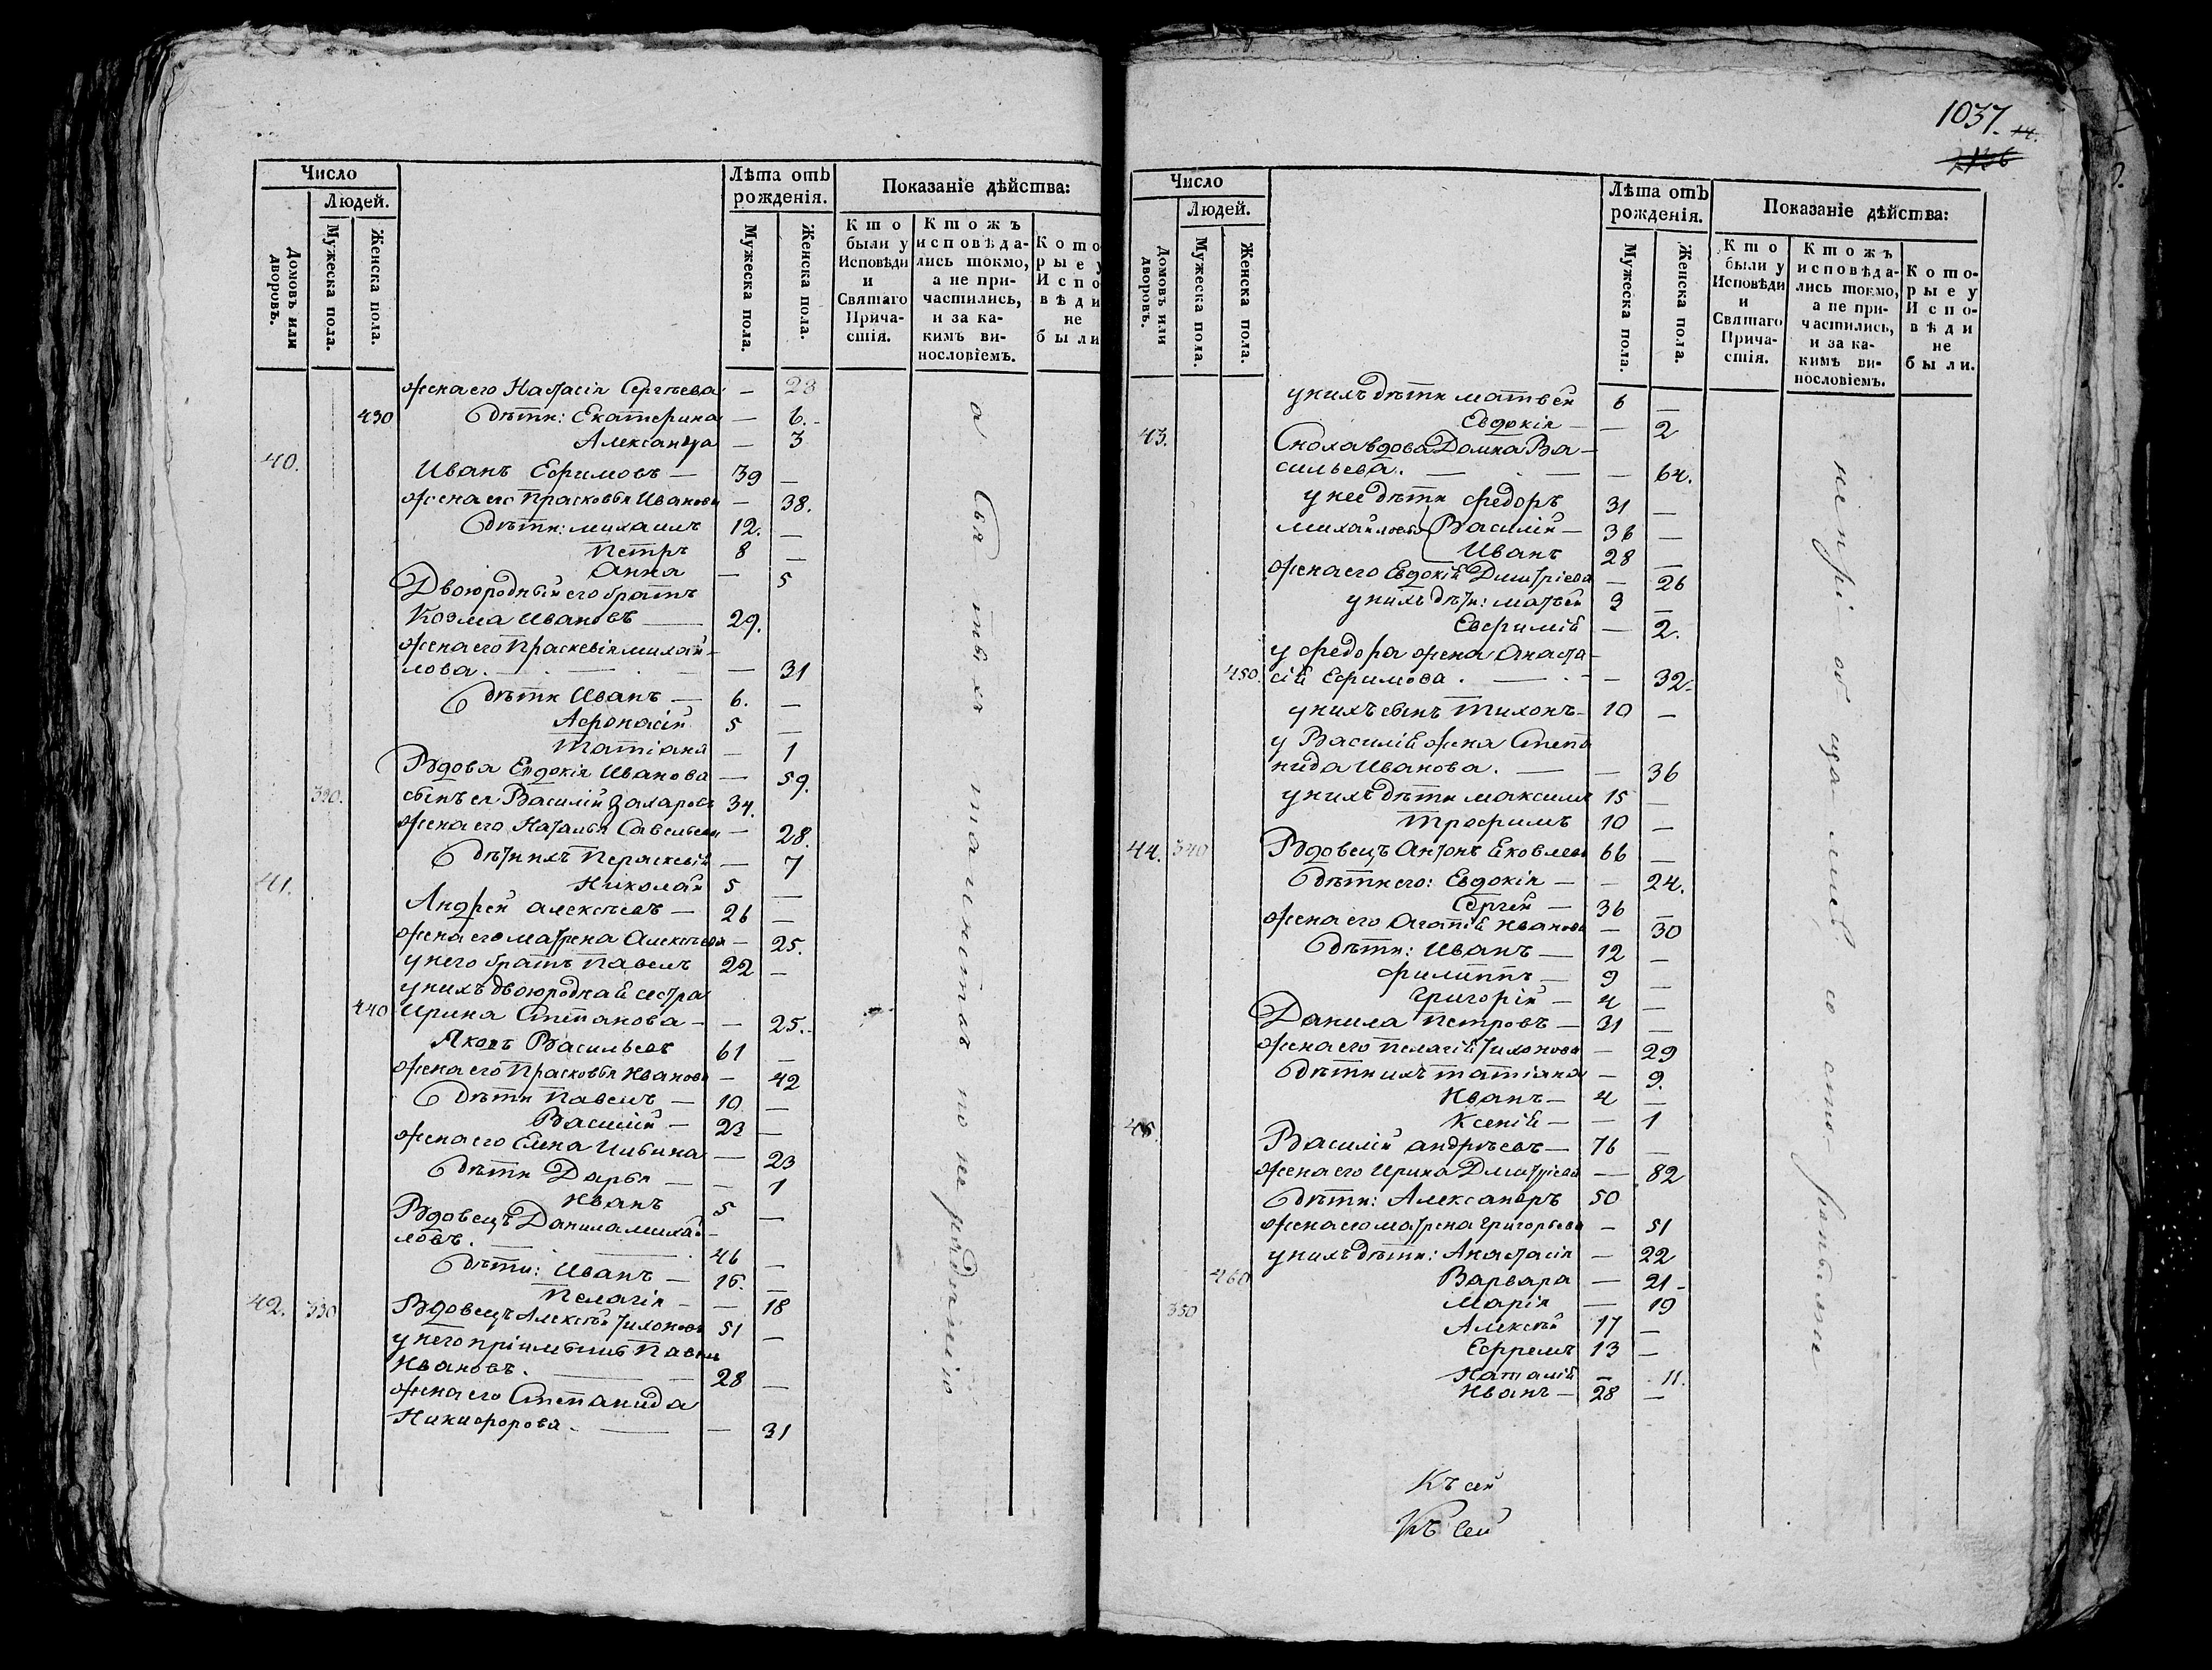 Число
Людей.
Домовъ или дворовъ.
Мужеска пола.
Женска пола.
Лѣта отъ рожденія.
Мужеска пола.
Женска пола.
Показаніе дѣйства:
Кто были у Исповѣди и Святаго Причастія.
Ктожъ исповѣдались токмо, а не причастились, и за какимъ винословіемъ.
Которые у Исповѣди не были
жена его Настасія Сергѣева — 23
430 дѣти: Екатерина — 6.
Александра — 3
40.
Иванъ Ефимовъ — 39 —
жена его Прасковья Иванова — 38.
дѣти: михаилъ 12. —
Петръ 8 —
Анна — 5
Двоюродный его братъ
Козма Ивановъ — 29.
жена его Праскевія михай-
лова. — — 31
дѣти Иванъ — 6. —
Афонасій 5 —
Татіана — 1
Вдова Евдокія Иванова — 59.
320. сынъ ея Василій Захаровъ 34.
жена его Наталья Савельева — 28.
дѣти ихъ Параскевія — 7
Николай 5 —
41.
Андрей алексѣевъ — 26 —
жена его матрена Алексѣева — 25.
у него братъ Павелъ 22 —
у нихъ двоюродная сестра
440 Ирина Степанова — — 25.
Яковъ Васильевъ 61 —
жена его Прасковья Иванова — 42
дѣти Павелъ — 10 —
Василій — 23 —
жена его Елена — 23
дѣти Дарья — — 1
Иванъ 5 —
Вдовецъ Данила михай-
ловъ. — 46 —
дѣти: Иванъ — 16. —
Пелагія — — 18
42. 330 Вдовецъ Алексѣй Тихоновъ 51 —
у него Павелъ
Ивановъ. — 28 —
жена его Степанида
Никифорова — — 31
а Свя
таинствъ по нерадѣнію
1037.
Число
Людей.
Домовъ или дворовъ.
Мужеска пола.
Женска пола.
Лѣта отъ рожденія.
Мужеска пола.
Женска пола.
Показаніе дѣйства:
Кто были у Исповѣди и Святаго Причастія.
Ктожъ исповѣдались токмо, а не причастились, и за какимъ винословіемъ.
Которые у Исповѣди не были.
у нихъ дѣти матвей 6 —
Евдокія — — 2
43.
Сноха вдова Домна Ва-
сильева. — — 64.
у нее дѣти федоръ 31 —
михайловы Василій — 36 —
Иванъ 28 —
жена его Евдокія Дмитріева — 26
у нихъ дѣти: матвей 3 —
Евфимія — 2.
у федора жена Анаста-
450. сія Ефимова. — — 32.
у нихъ сынъ Тихонъ — 10 —
у Василія жена Степа
нида Иванова. — — 36
у нихъ дѣти максимъ 15 —
Трофимъ 10 —
44. 340 Вдовецъ Антонъ Яковлевъ 66 —
дѣти его: Евдокія — — 24.
Сергей — 36 —
жена его Агапія Иванова — 30
дѣти: Иванъ — 12 —
филиппъ — 9 —
Григорій — 4 —
Данила Петровъ — 31 —
жена его Пелагія Тихонова — 29
дѣти ихъ татіана — 9.
Иванъ — 4 —
Ксенія — — 1
45.
Василій андрѣевъ — 76 —
жена его Ирина Дмитріева — 82
дѣти: Александръ 50
жена его матрена григорьева — 51
у нихъ дѣти: Анастасія — 22
460 Варвара — 21 —
350 Марія — 19
Алексѣй 17 —
Ефремъ 13 —
Наталія — 11.
Иванъ — 28 —
Къ сей
Къ Сей